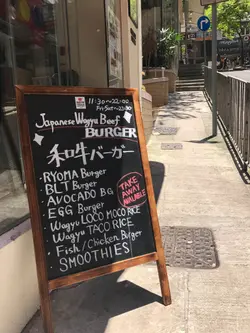 11:30~22:00
Fri・Sat~23:00
Japanese Wagyu Beef
BURGER
和牛バーガー
RYOMA Burger
BLT Burger
AVOCADO BG
EGG Burger
Wagyu LOCO MOCO RICE
Wagyu TACO RICE
Fish/Chicken Burger
SMOOTHIES
TAKE
AWAY
AVAILABLE